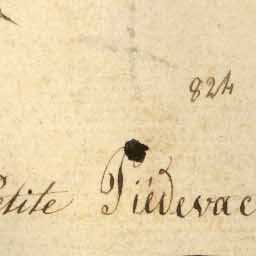 824
etite Piédevac